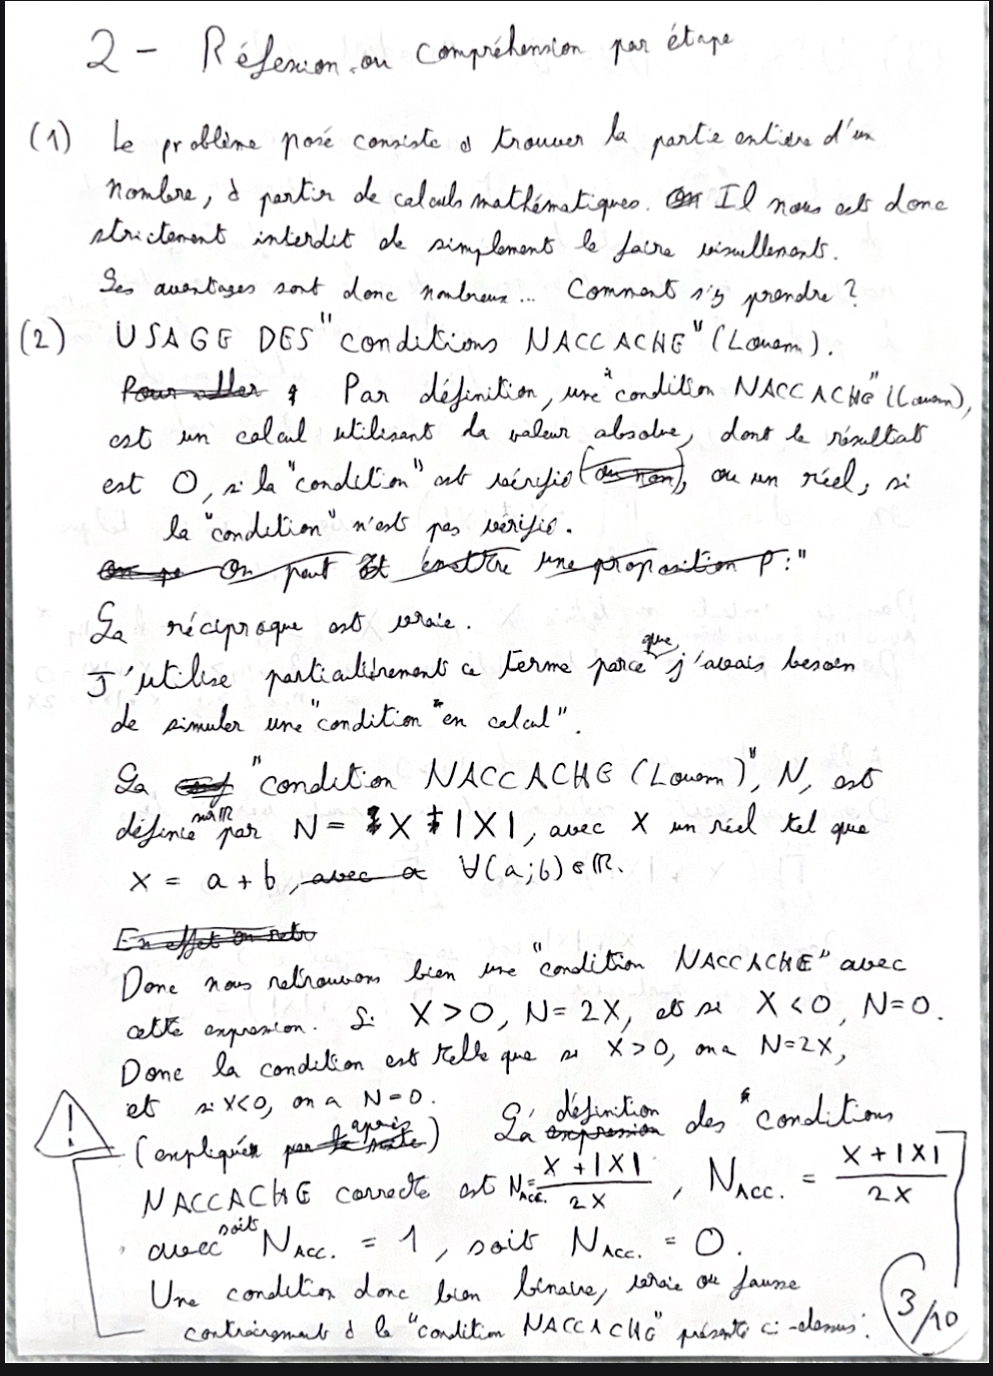 2 - Réflexion ou compréhension par étape
(1) Le problème posé consiste à trouver la partie entière d'un
nombre, à partir de calculs mathématiques. Il nous est donc
strictement interdit de simplement le faire visuellement.
Les avantages sont donc nombreux... Comment s'y prendre ?
(2) USAGE DES "conditions NACCACHE" (Louann).
Par définition, une "condition NACCACHE" (Louann),
est un calcul utilisant la valeur absolue, dont le résultat
est 0, si la "condition" est vérifié, ou un réel, si
la "condition" n'est pas vérifié.
La réciproque est vraie.
J'utilise particulièrement ce terme parce que j'avais besoin
de simuler une "condition "en calcul".
La "condition NACCACHE (Louann)", N, est
définie sur ℝ par N = X + |X|, avec X un réel tel que
X = a + b, ∀(a;b) ∈ ℝ.
Donc nous retrouvons bien une "condition NACCACHE" avec
cette expression. Si X > 0, N = 2X, et si X < 0, N = 0.
Donc la condition est telle que si X > 0, on a N = 2X,
et si X < 0, on a N = 0.
(expliquée après) La définition des "conditions
NACCACHE correcte est N_Acc. = X + |X| / 2X, N_Acc. = X + |X| / 2X
avec soit N_Acc. = 1, soit N_Acc. = 0.
Une condition donc bien binaire, vraie ou fausse
contrairement à la "condition NACCACHE" présente ci-dessus.
3/10